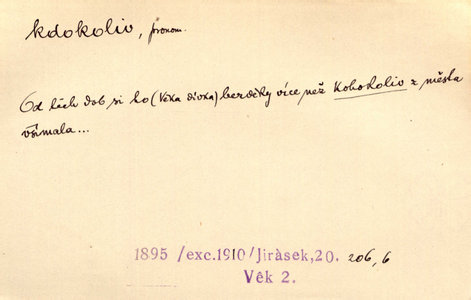 kdokoliv, pronom.
Od těch dob si ho (Věka dívka) bezděky více než kohokoliv z města
všímala...
1895 /exc.1910/Jiràsek,20. 206,6
Vêk 2.